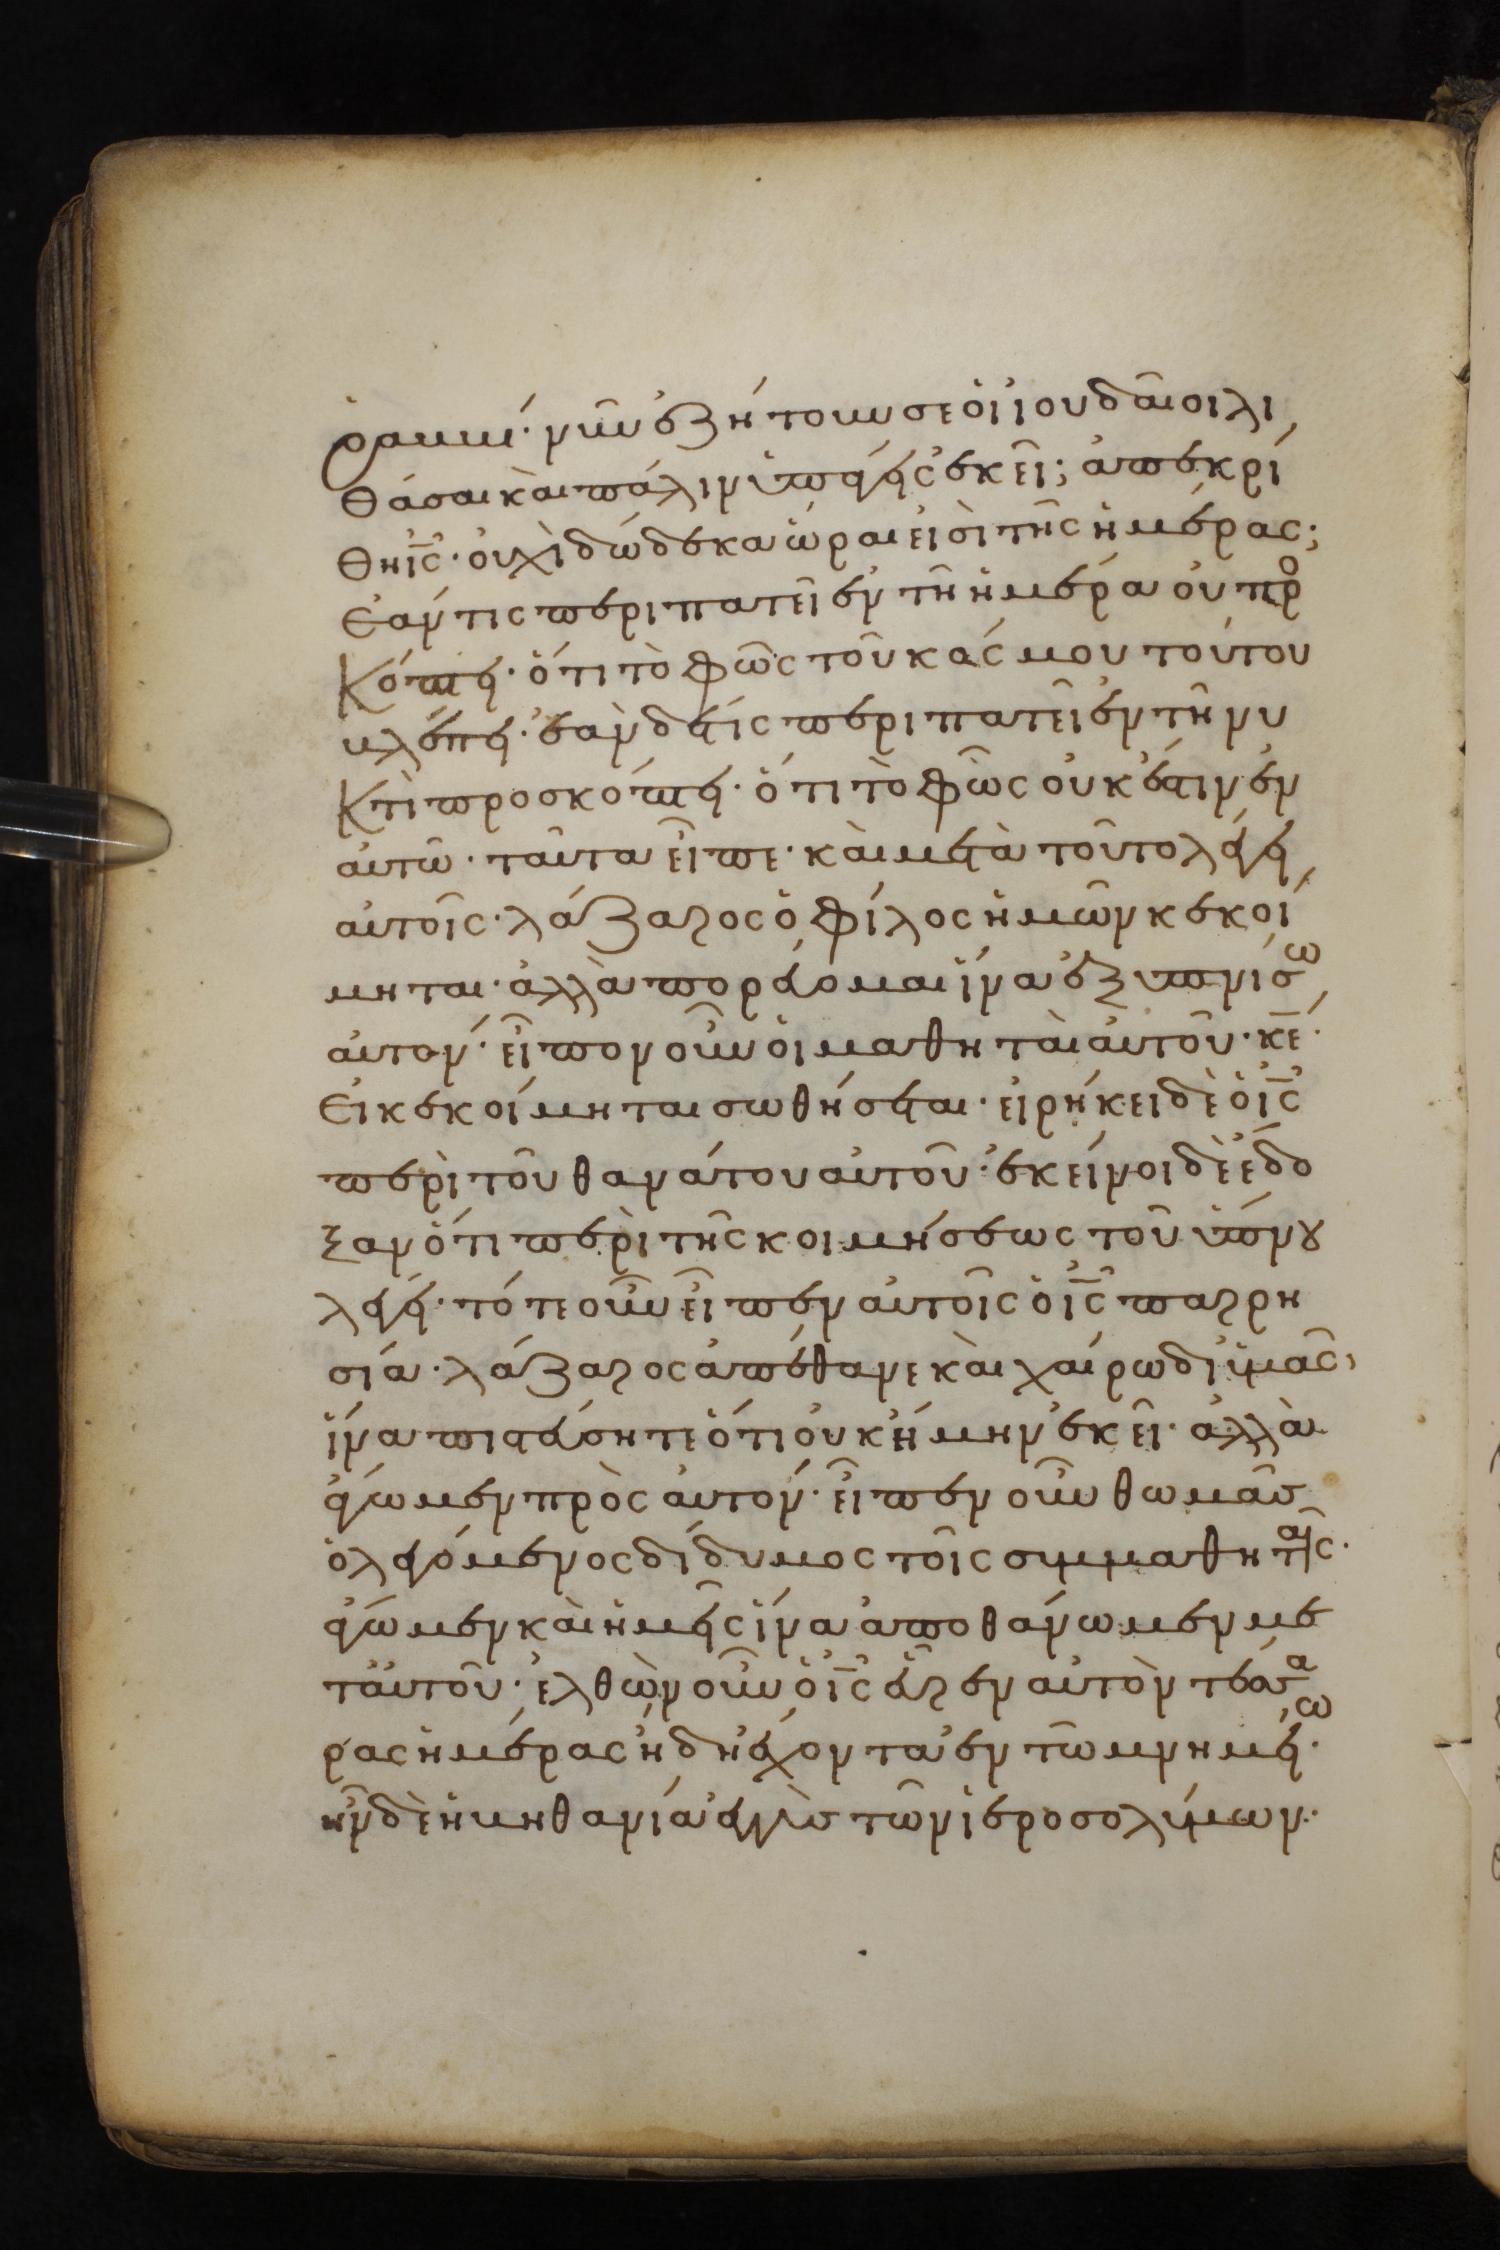 ῥαββί· νῦν ἐζήτουν σε ὁι ἰουδᾶιοι λι
θάσαι κὰι πάλιν ὑπάγεις ἐκεῖ; ἀπεκρί
θη ἰς̅· ὀυχὶ δώδεκα ὧραι εἰσὶ τῆς ἡμέρας;
Ἐάν τις περιπατεῖ ἐν τῆ ἡμέρα ὀυ προ
Κόπτει· ὅτι τὸ φῶς τοῦ κόσμου τούτου
βλέπει· ἐὰν δέ τις περιπατεῖ ἐν τῆ νυ
Κτὶ προσκόπτει· ὅτι τὸ φῶς ὀυκ ἔστιν ἐν
ἀυτῶ· ταῦτα εἶπε· κὰι μετὰ τοῦτο λέγει
ἀυτοῖς· λάζαρος ὁ φίλος ἡμῶν κεκοί
μηται· ἀλλὰ πορεύομαι ἵνα ἐξυπνίσω
ἀυτον· εἶπον οὖν ὁι μαθητὰι ἀυτοῦ· κε̅·
Ἐι κεκοίμηται σωθήσεται· ἐιρήκει δὲ ὁ ἰς̅
περὶ τοῦ θανάτου ἀυτοῦ· ἐκεῖνοι δὲ ἔδο
ξαν ὅτι περὶ τῆς κοιμήσεως τοῦ ὕπνου
λέγει· τότε οὖν εἶπεν ἀυτοῖς ὁ ἰς̅ παρρη
σία· λάζαρος ἀπέθανε κὰι χαίρω δι ὑμᾶς,
ἵνα πιστεύσητε ὅτι ὀυκ ἤμην ἐκεῖ· ἀλλὰ
ἄγωμεν πρὸς ἀυτόν· εἶπεν οὖν θωμᾶσ
ὁ λεγόμενος δίδυμος τοῖς συμμαθηταῖς·
ἄγωμεν κὰι ἡμεῖς ἵνα ἀποθάνωμεν με
τ ἀυτοῦ· ἐλθὼν οὖν ὁ ἰς̅ εὗρεν ἀυτὸν τέσσα
ρας ἡμέρας ἤδη ἔχοντα ἐν τῶ μνημείω·
ἦν δὲ ἡ βηθανία ἐγγὺσ τῶν ἱεροσολύμων·